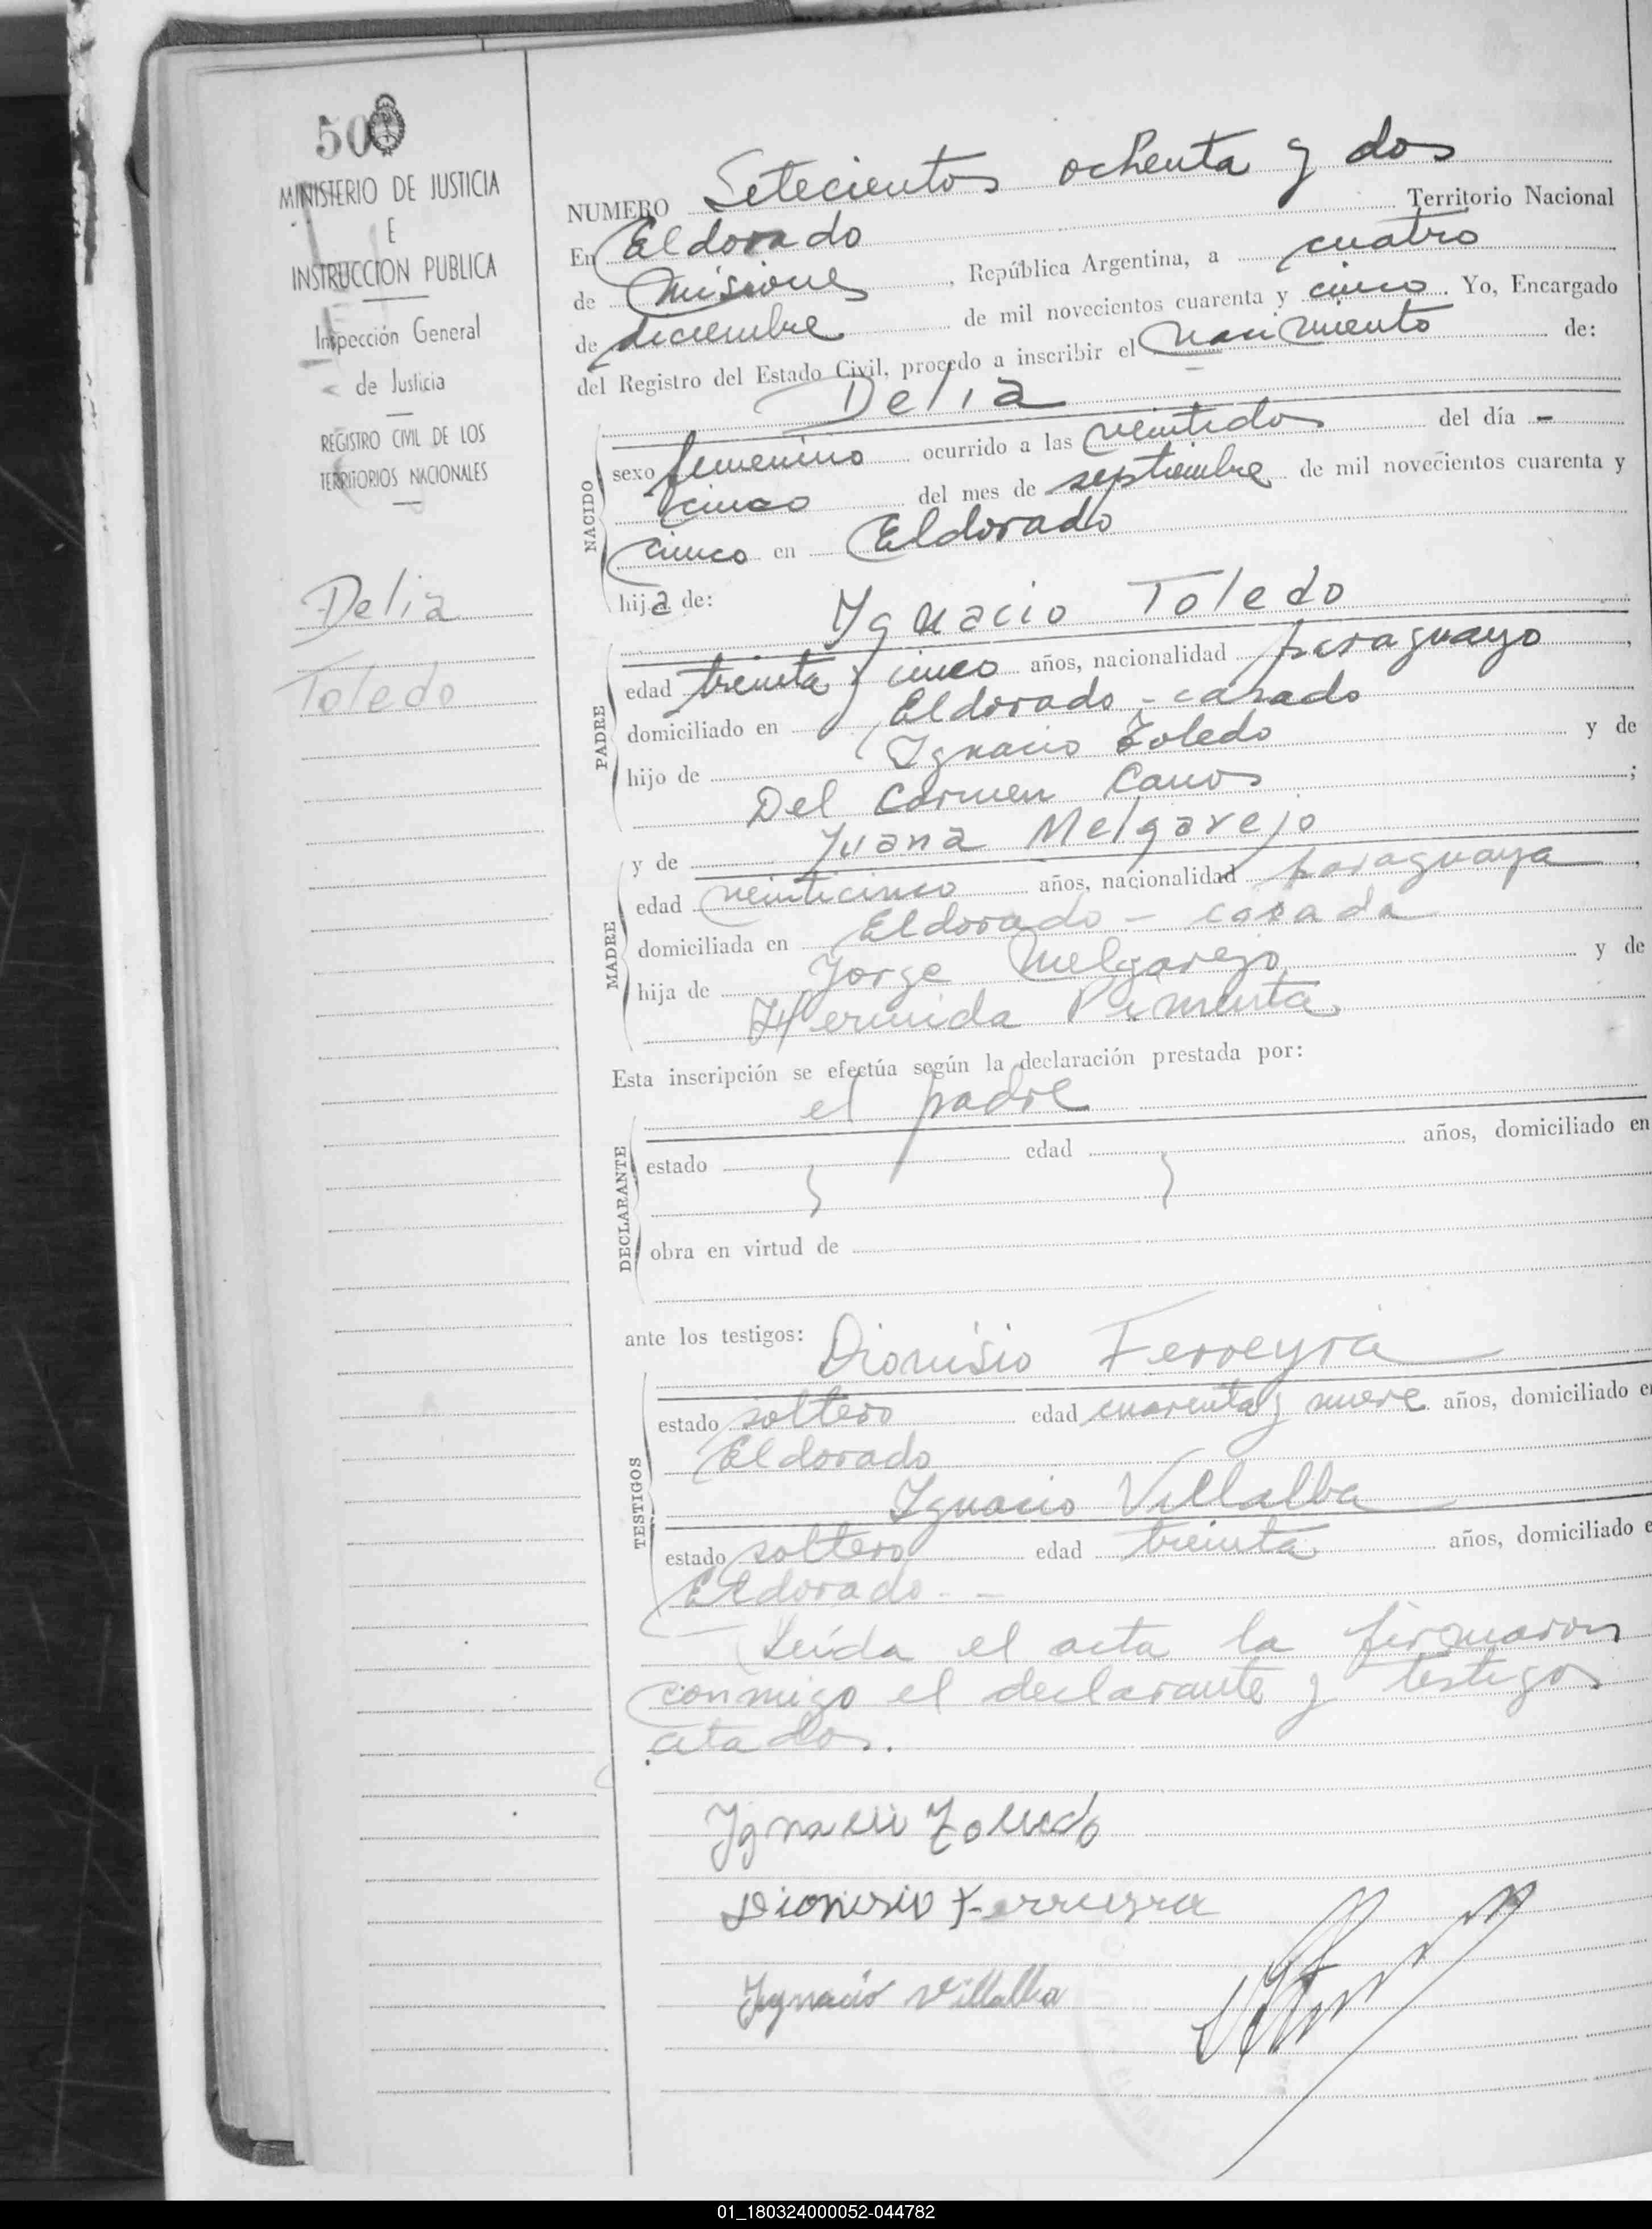 50
MINISTERIO DE JUSTICIA
E
INSTRUCCION PUBLICA
Inspección General
de Justicia
REGISTRO CIVIL DE LOS
TERRITORIOS NACIONALES
Delia
Toledo
NUMERO Setecientos ochenta y dos
En Eldorado Territorio Nacional
de Misiones, República Argentina, a cuatro
de diciembre de mil novecientos cuarenta y cinco. Yo, Encargado
del Registro del Estado Civil, procedo a inscribir el nacimiento de:
Delia
NACIDO
sexo femenino ocurrido a las veintidos del día -
cinco del mes de septiembre de mil novecientos cuarenta y
cinco en Eldorado
hija de:
Ygnacio Toledo
PADRE
edad treinta y cinco años, nacionalidad paraguayo,
domiciliado en Eldorado - casado
hijo de Ignacio Toledo y de
Del Carmen ;
y de Juana Melgarejo
MADRE
edad veinticinco años, nacionalidad paraguaya,
domiciliada en Eldorado - casada
hija de Jorge Melgarejo y de
Herminda Pimenta
Esta inscripción se efectúa según la declaración prestada por:
el padre
DECLARANTE
estado edad años, domiciliado en
obra en virtud de
ante los testigos: Dionisio Ferreyra
TESTIGOS
estado soltero edad cuarenta y nueve años, domiciliado en
Eldorado
Ignacio Villalba
estado soltero edad treinta años, domiciliado e
Eldorado. -
Leída el acta la firmaron
conmigo el declarante y testigos
citados.
Ygnacio Toledo
Dionisio Ferreyra
Ygnacio Villalba
01_180324000052-044782